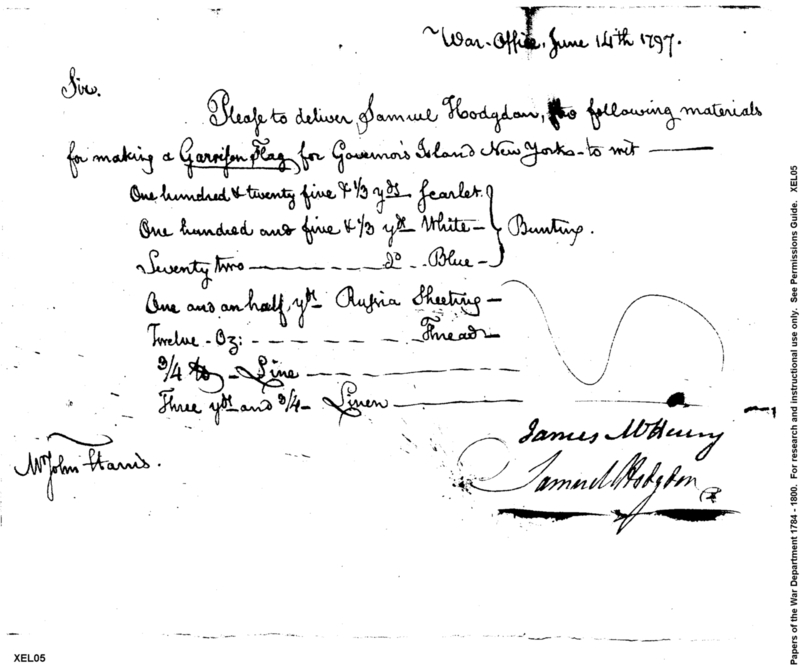 War-Office, June 14th 1797.
Sir.
Please to deliver Samuel Hodgdon, the following materials
for making a Garrison Flag for Governor's Island New York - to wit
One hundred & twenty five & 1/3 yds Scarlet.
One hundred and five & 1/3 yds White - Bunting.
Seventy two Do Blue -
One and an half yds Russia Sheeting -
Twelve - Oz: Thread
3/4 lb - Line
Three yds and 3/4 - Linen
James McHenry
Mr John Harris.
Samuel Hodgdon
XEL05
Papers of the War Department 1784 - 1800. For research and instructional use only. See Permissions Guide. XEL05